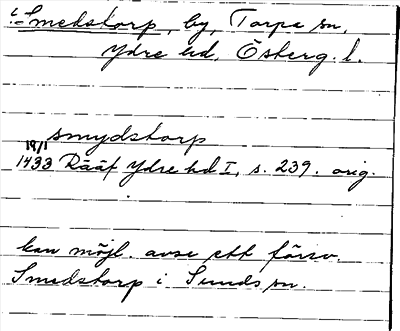 i Smedstorp, by, Torpa sn,
Ydre hd, Österg. l.
smydstorp
19/1
1433 Rääf Ydre hd I, s. 239. orig.
kan möjl. avse ett försv.
Smedstorp i Sunds sn.